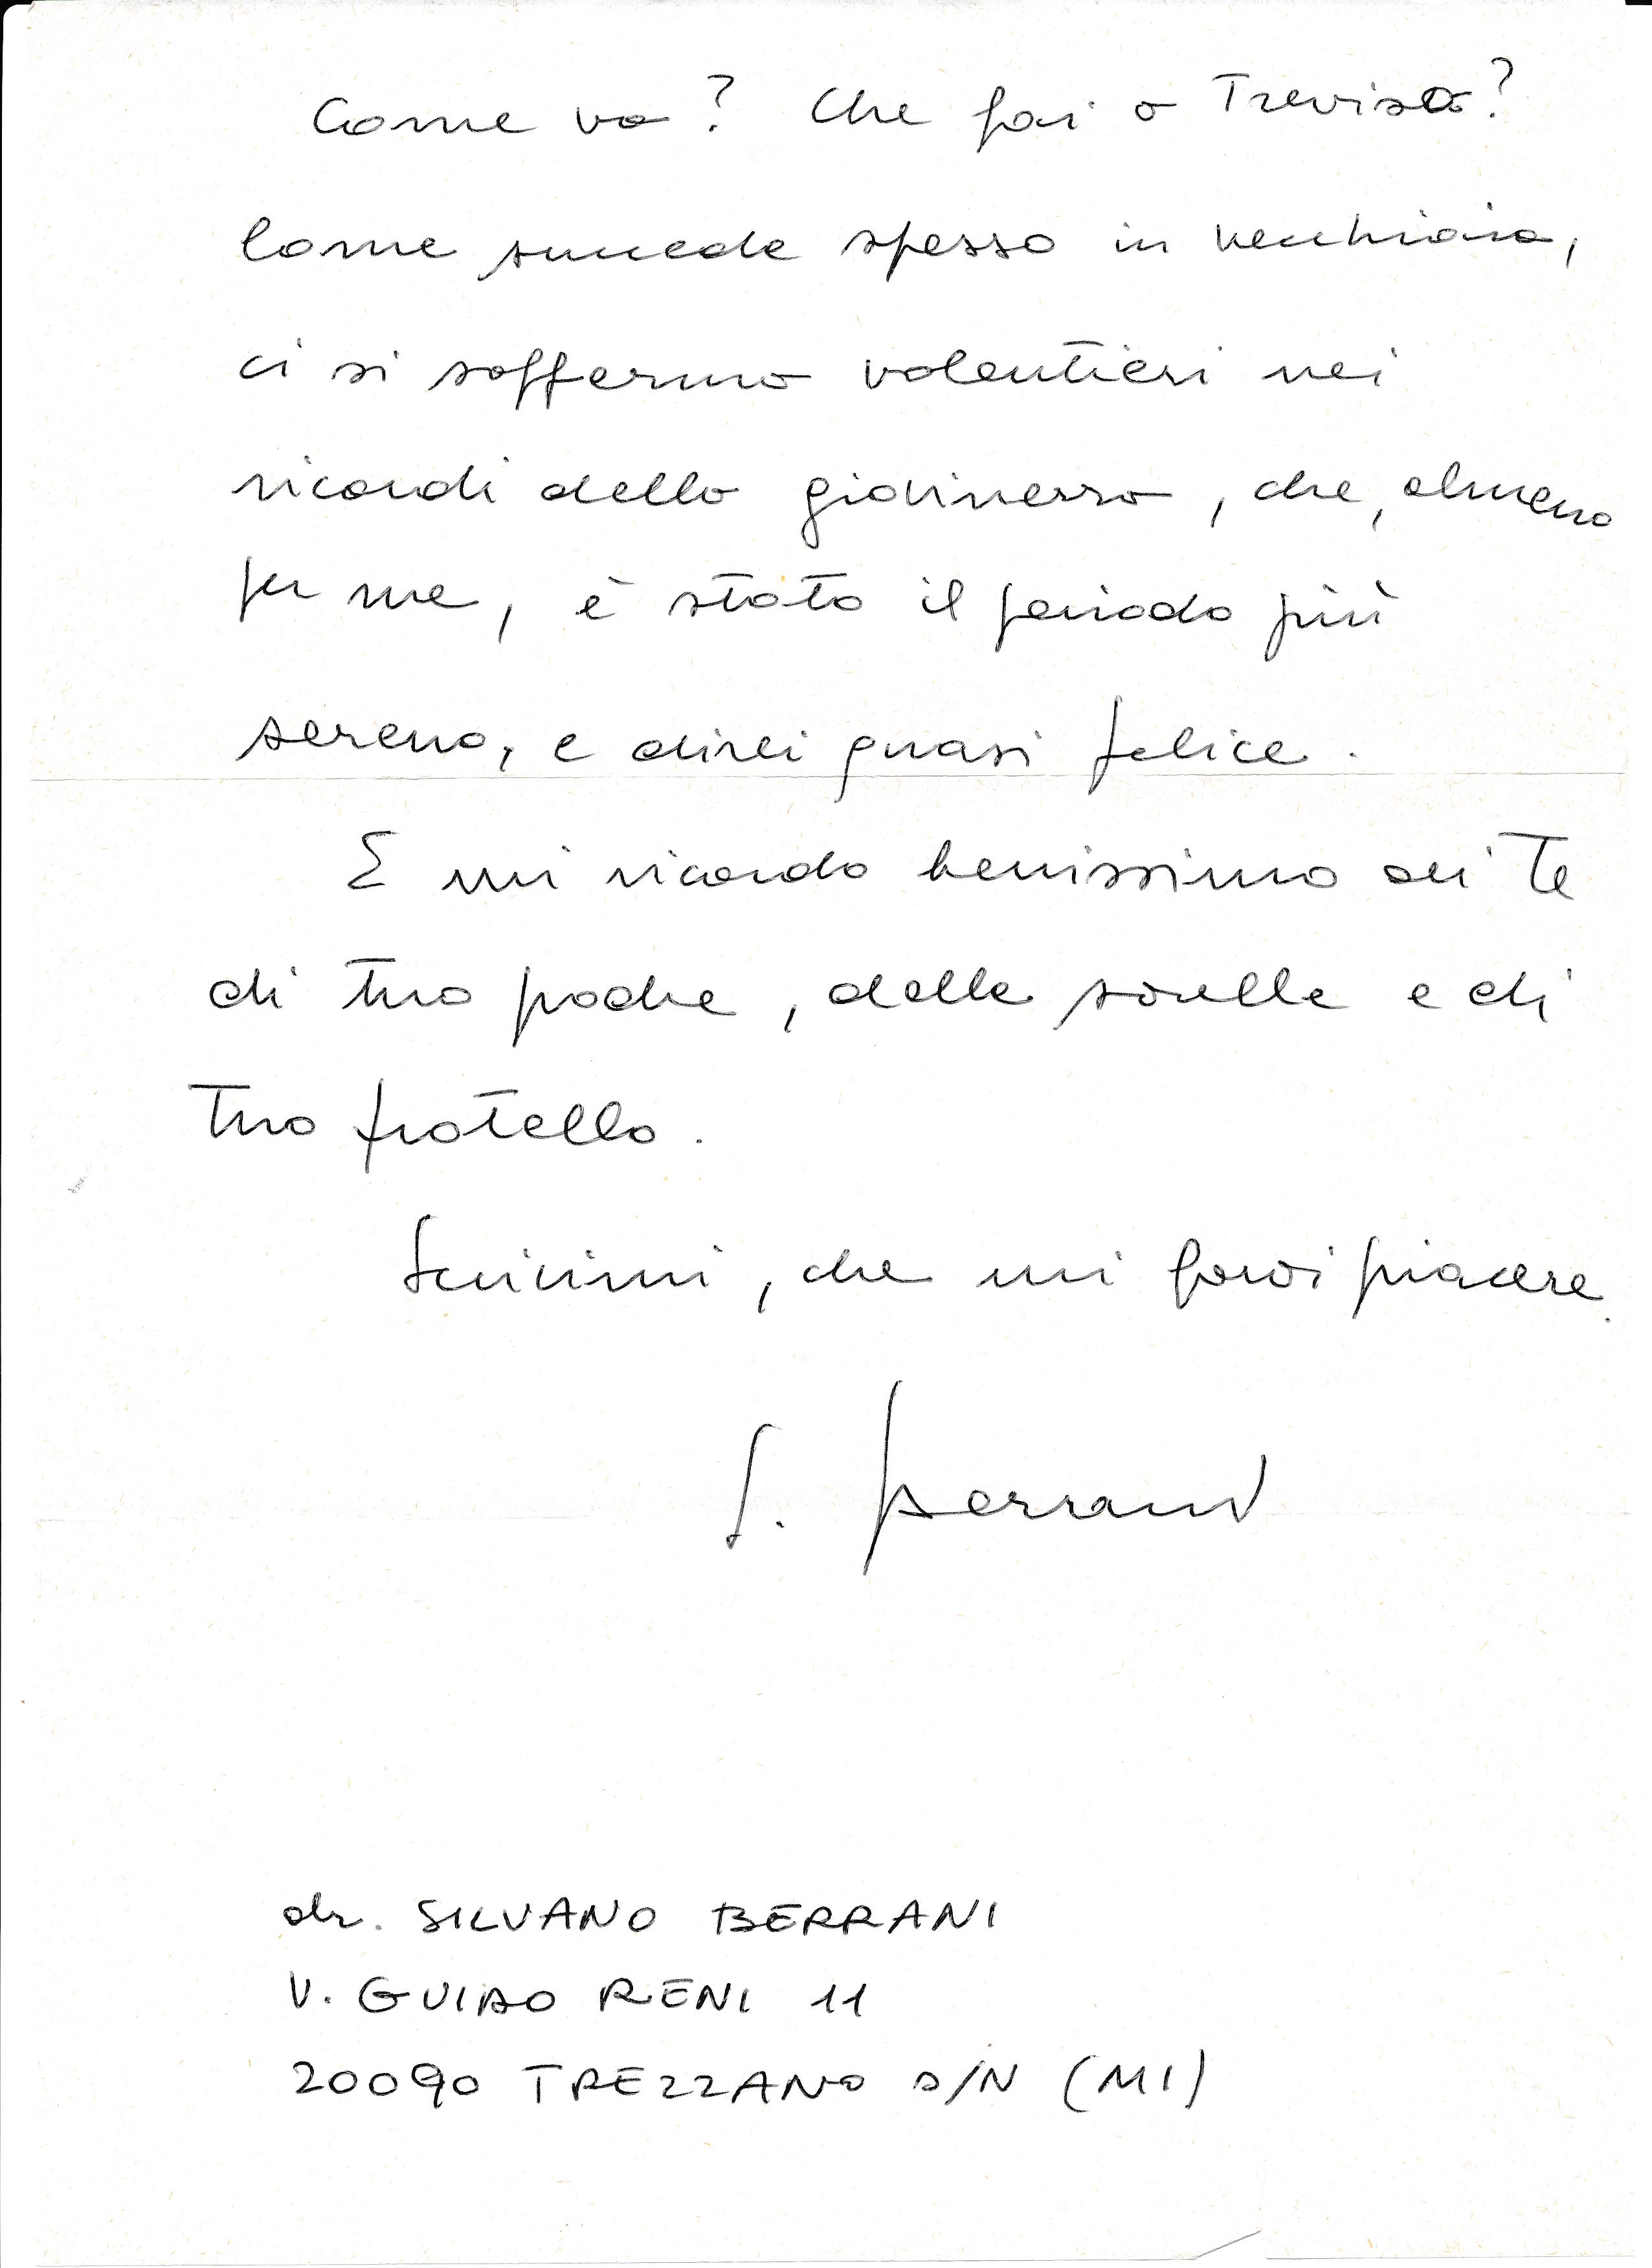 Come va? Che fai a Treviso?
Come succede spesso in vecchiaia,
ci si sofferma volentieri nei
ricordi della giovinezza, che, almeno
per me, è stato il periodo più
sereno, e direi quasi felice.
E mi ricordo benissimo di te
di tuo padre, delle sorelle e di
tuo fratello.
Scrivimi, che mi farai piacere.
S. Berrani
dr. SILVANO BERRANI
V. GUIDO RENI 11
20090 TREZZANO S/N (MI)